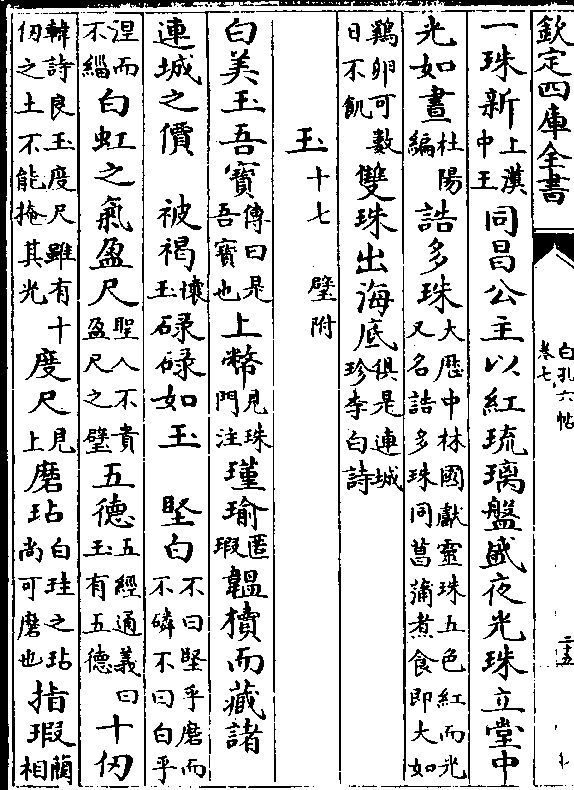 欽定四庫全書
白孔六帖
卷七
一珠新上漢中王同昌公主以紅琉璃盤盛夜光珠立堂中
光如晝杜陽編誥多珠大厯中林國獻靈珠五色紅而光又名誥多珠同菖蒲煮食即大如
鷄卵可數日不飢雙珠出海底俱是連城珍李白詩
玉十七 璧附
白美玉吾寳傳曰是吾寳也上幣見珠門注瑾瑜匿瑕韞櫝而藏諸
連城之價 被褐懷玉碌碌如玉 堅白不曰堅乎磨而不磷不曰白乎
涅而不緇白虹之氣盈尺聖人不貴盈尺之璧五德五經通義曰玉有五德十仞
韓詩良玉度尺雖有十仞之土不能掩其光度尺見上磨玷白珪之玷尚可磨也指瑕藺相